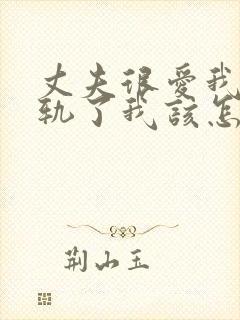 丈夫很爱我
轨了我该怎
荆山玉